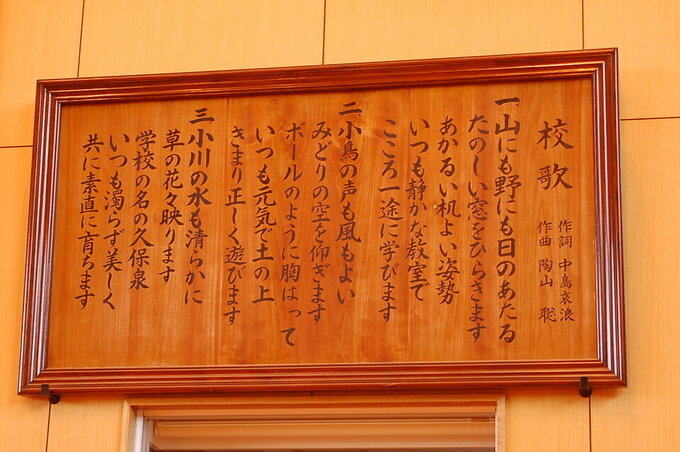 校歌
作詞 中島哀浪
作曲 陶山 聡
一 山にも野にも日のあたる
たのしい窓をひらきます
あかるい机よい姿勢
いつも静かな教室で
こころ一途に学びます
二 小鳥の声も風もよい
みどりの空を仰ぎます
ボールのように胸はって
いつも元気で土の上
きまり正しく遊びます
三 小川の水も清らかに
草の花々映ります
学校の名の久保泉
いつも濁らず美しく
共に素直に育ちます